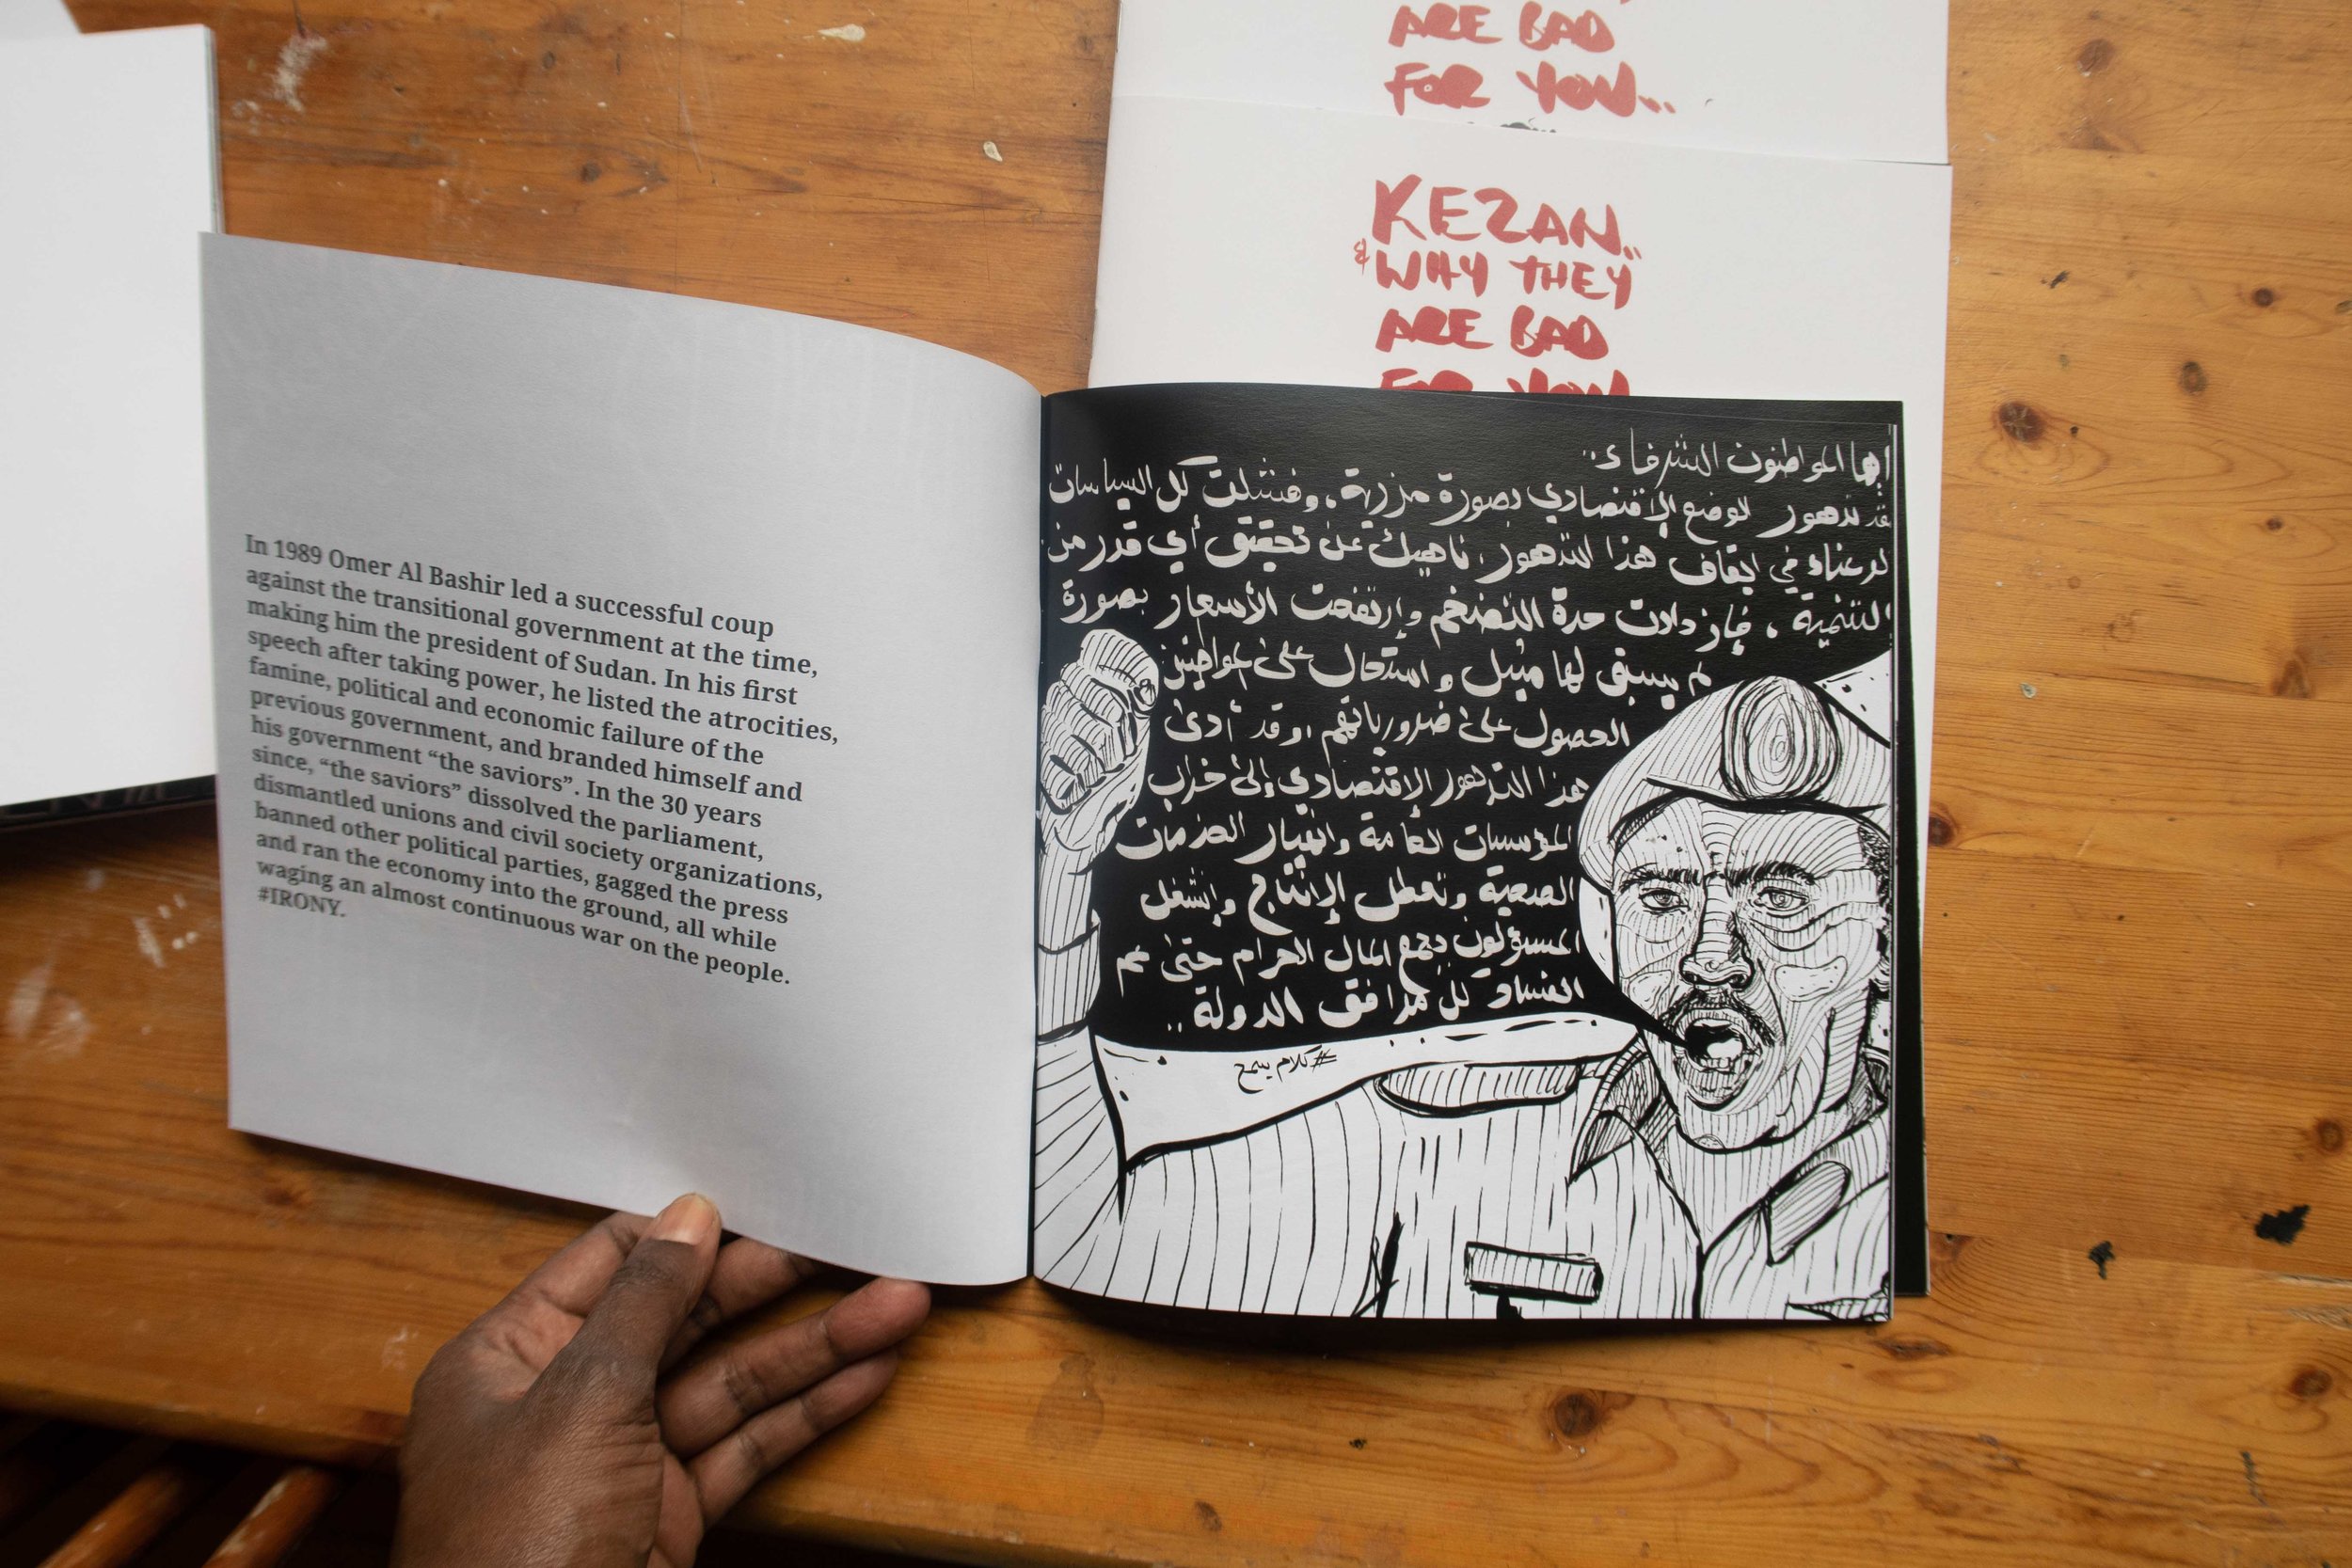 ARE BAD
FOR YOU...
KEZAN..
& WHY THEY
ARE BAD
FOR YOU
In 1989 Omer Al Bashir led a successful coup
against the transitional government at the time,
making him the president of Sudan. In his first
speech after taking power, he listed the atrocities,
famine, political and economic failure of the
previous government, and branded himself and
his government “the saviors”. In the 30 years
since, “the saviors” dissolved the parliament,
dismantled unions and civil society organizations,
banned other political parties, gagged the press
and ran the economy into the ground, all while
waging an almost continuous war on the people.
#IRONY.
أيها المواطنون الشرفاء..
لقد تدهور الوضع الإقتصادي بصورة مزرية، وفشلت كل السياسات
الرعناء في إيقاف هذا التدهور، ناهيك عن تحقيق أي قدر من
التنمية، فازدادت حدة التضخم وإرتفعت الأسعار بصورة
لم يسبق لها مثيل و استحال على المواطنين
الحصول على ضرورياتهم، وقد أدى
هذا التدهور الإقتصادي إلى خراب
المؤسسات العامة وإنهيار الخدمات
الصحية وتعطل الإنتاج وإنشغل
المسؤلون بجمع المال الحرام حتى عم
الفساد كل مرافق الدولة..
#كلام_يسمح